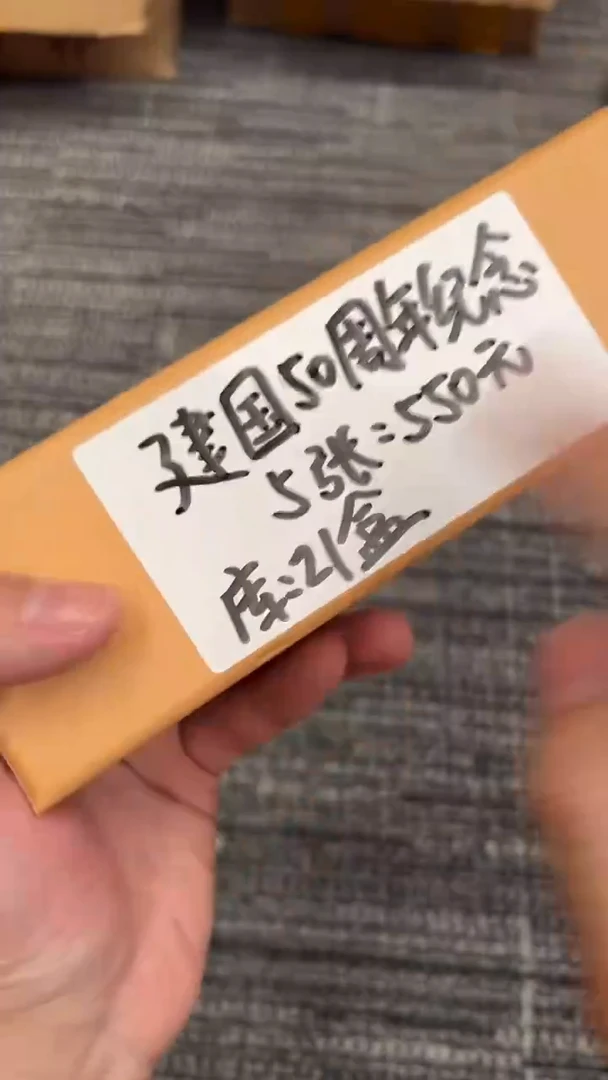 建国50周年纪念
5张:550元
库:21盒